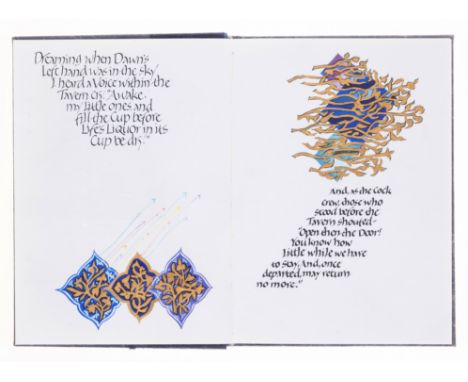 Dreaming when Dawn's
Left hand was in the sky
I heard a Voice within the
Tavern cry, "Awake,
my little ones and
fill the Cup before
Life's Liquor in its
Cup be dry."
And, as the Cock
crew, those who
stood before the
Tavern shouted -
"Open then the Door!
You know how
little while we have
to stay, And, once
departed, may return
no more."